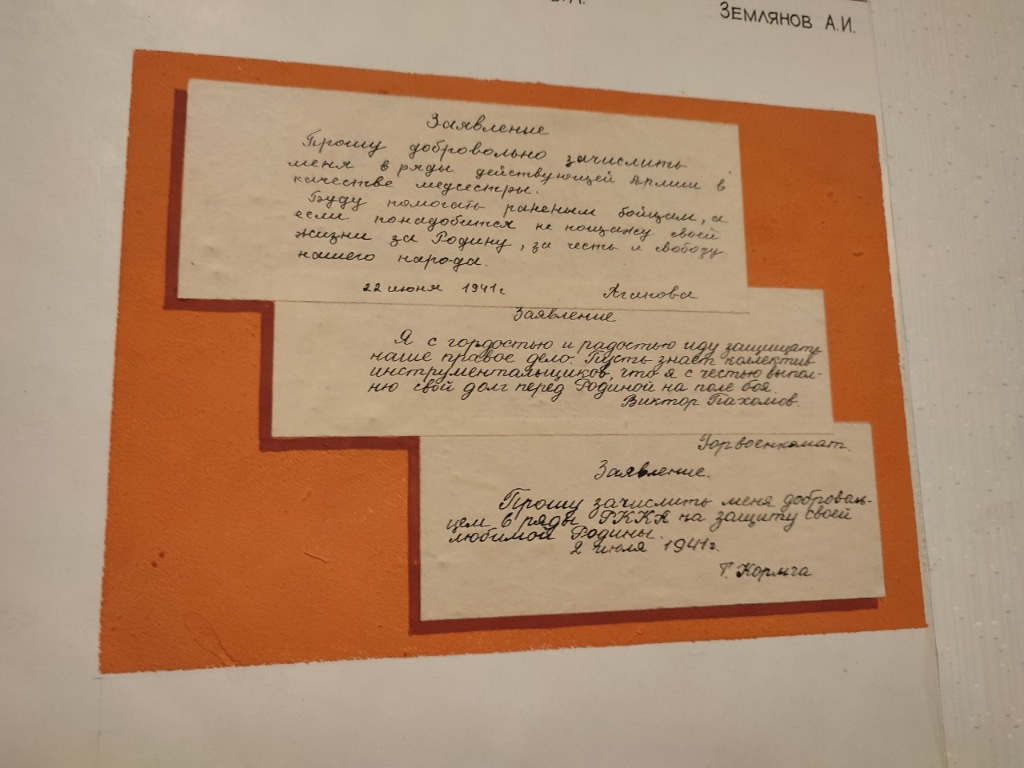 Землянов А.И.
Заявление
Прошу добровольно зачислить
меня в ряды действующей Армии в
качестве медсестры.
Буду помогать раненым бойцам, а
если понадобится не пощажу своей
жизни за Родину, за честь и свободу
нашего народа.
22 июня 1941г Агинова
Заявление
Я с гордостью и радостью иду защищать
наше правое дело. Пусть знает коллектив
инструментальщиков, что я с честью выпол-
ню свой долг перед Родиной на поле боя.
Виктор Пахомов.
Горвоенкомат.
Заявление.
Прошу зачислить меня доброволь-
цем в ряды РККА на защиту своей
любимой Родины.
2 июля 1941г.
Г. Кормча